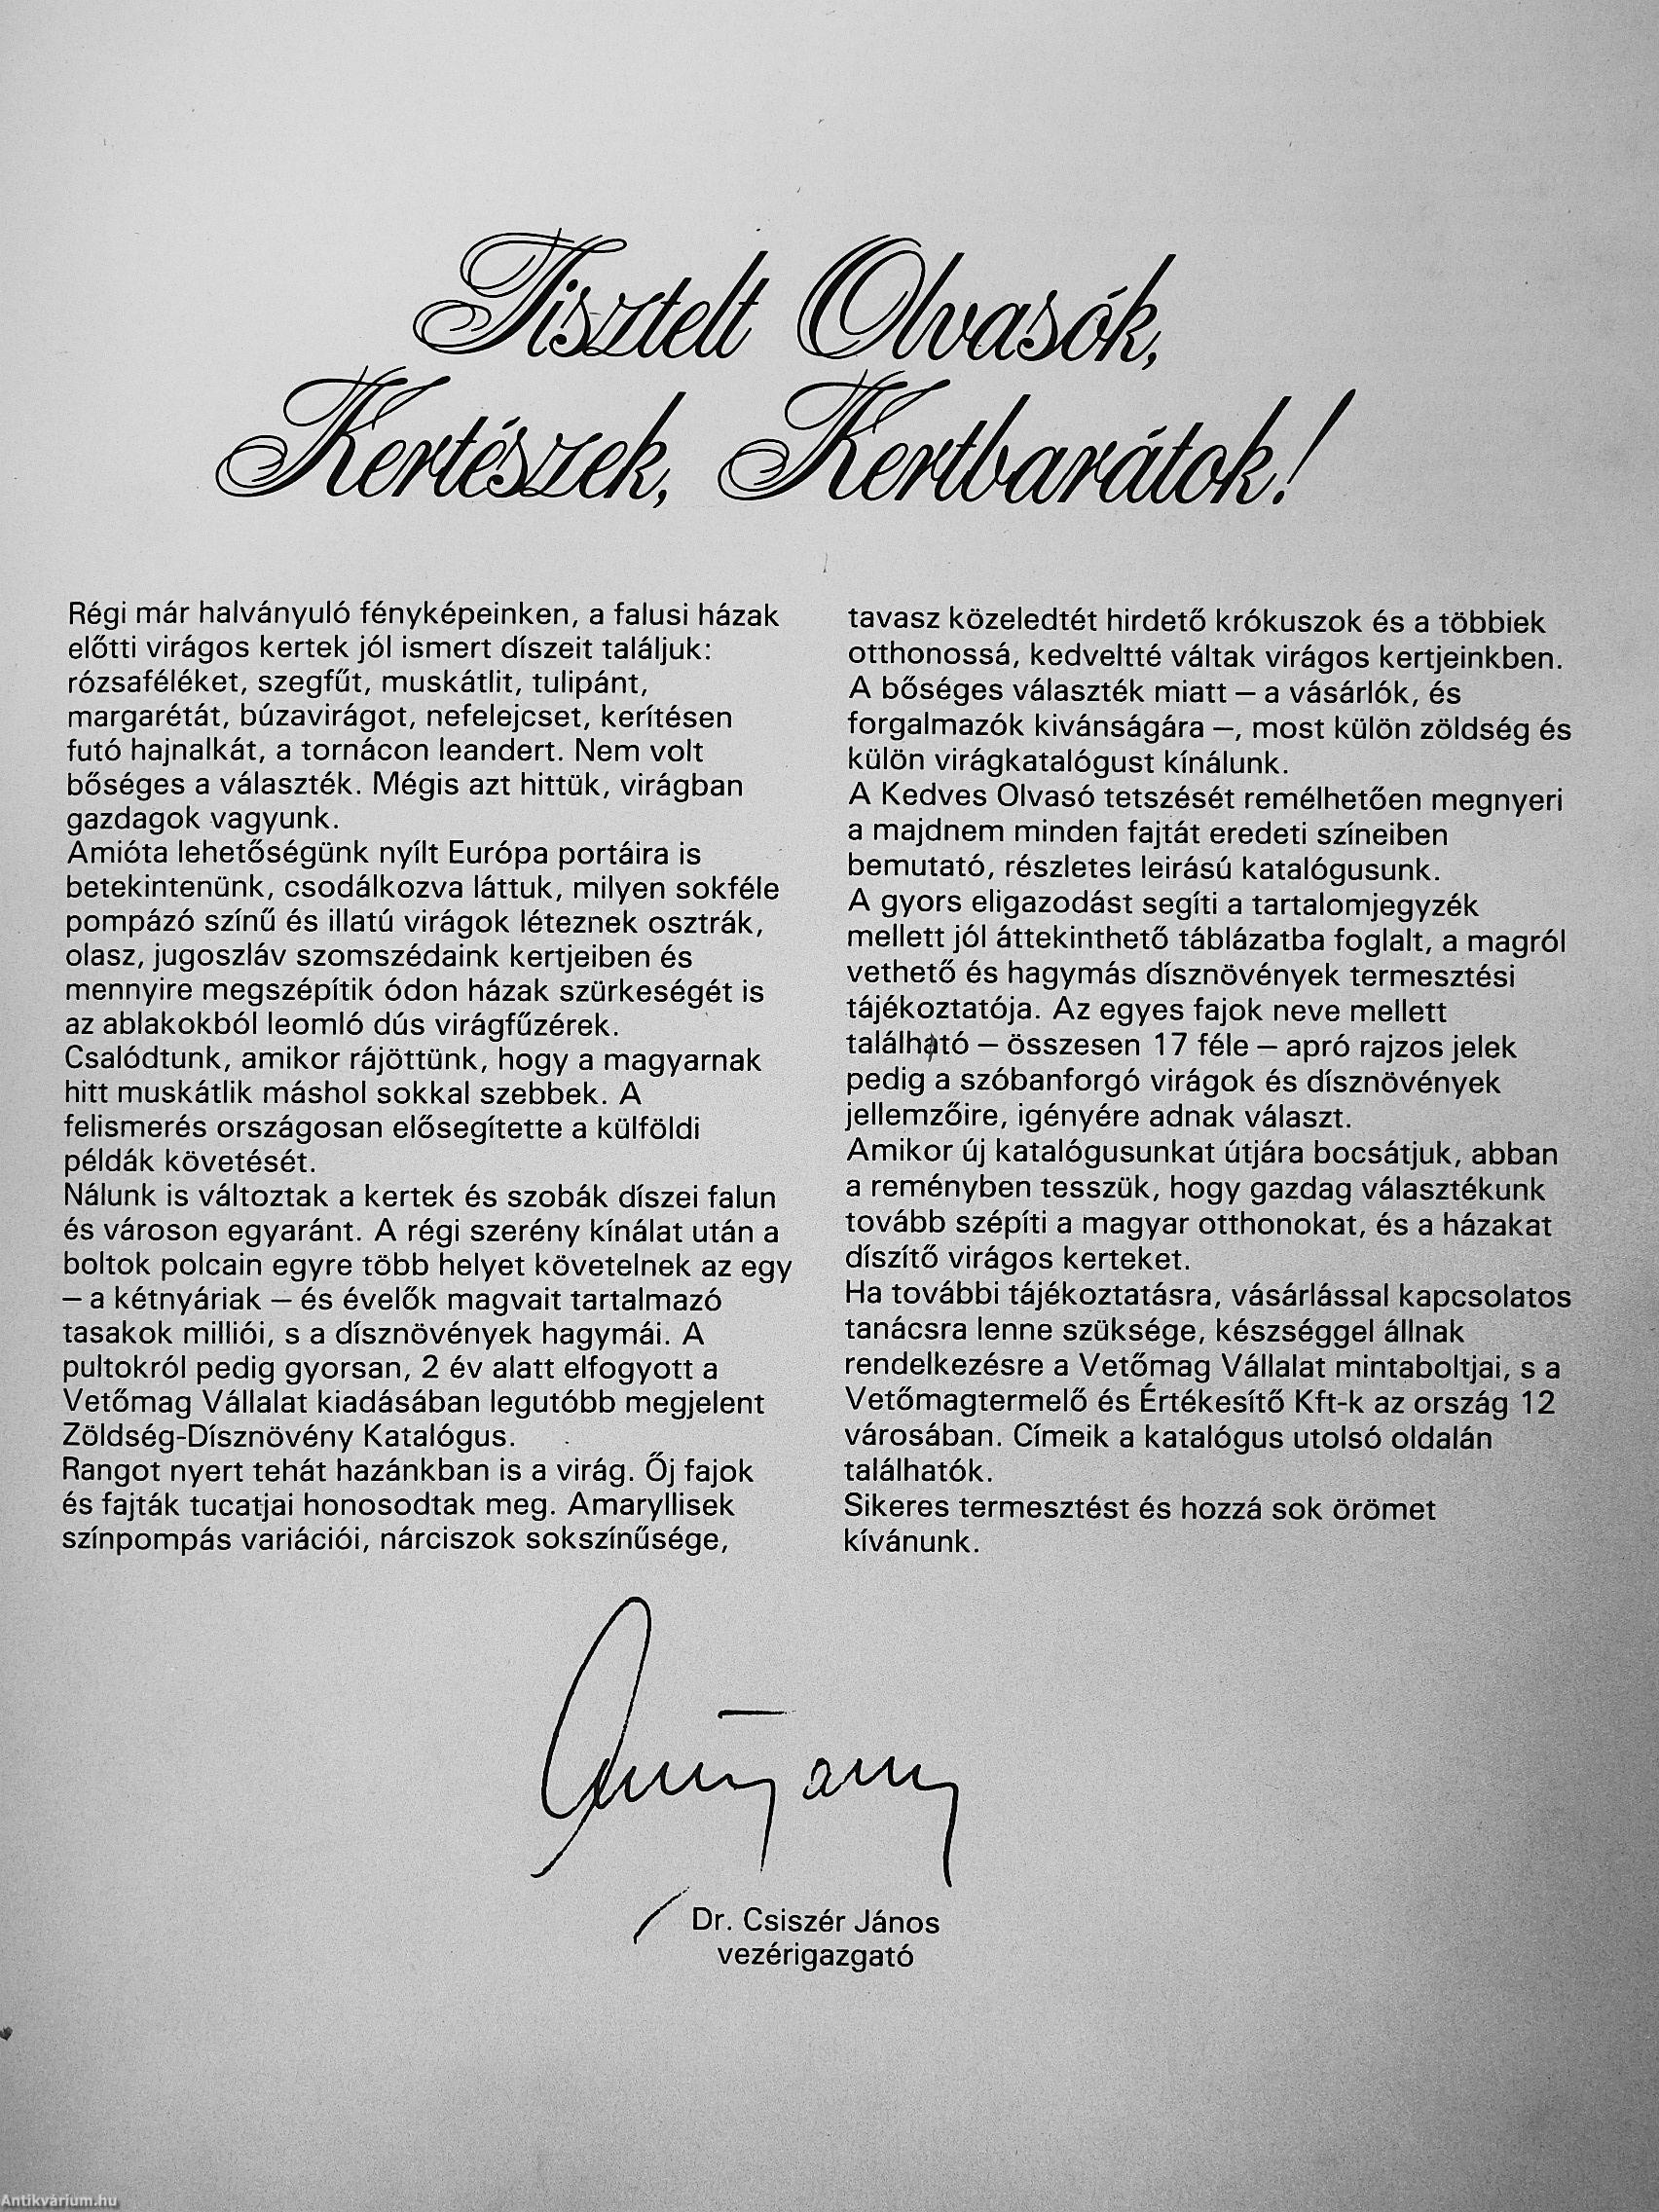 Tisztelt Olvasók,
Kertészek, Kertbarátok!
Régi már halványuló fényképeinken, a falusi házak
előtti virágos kertek jól ismert díszeit találjuk:
rózsaféléket, szegfűt, muskátlit, tulipánt,
margarétát, búzavirágot, nefelejcset, kerítésen
futó hajnalkát, a tornácon leandert. Nem volt
bőséges a választék. Mégis azt hittük, virágban
gazdagok vagyunk.
Amióta lehetőségünk nyílt Európa portáira is
betekintenünk, csodálkozva láttuk, milyen sokféle
pompázó színű és illatú virágok léteznek osztrák,
olasz, jugoszláv szomszédaink kertjeiben és
mennyire megszépítik ódon házak szürkeségét is
az ablakokból leomló dús virágfűzérek.
Csalódtunk, amikor rájöttünk, hogy a magyarnak
hitt muskátlik máshol sokkal szebbek. A
felismerés országosan elősegítette a külföldi
példák követését.
Nálunk is változtak a kertek és szobák díszei falun
és városon egyaránt. A régi szerény kínálat után a
boltok polcain egyre több helyet követelnek az egy
– a kétnyáriak – és évelők magvait tartalmazó
tasakok milliói, s a dísznövények hagymái. A
pultokról pedig gyorsan, 2 év alatt elfogyott a
Vetőmag Vállalat kiadásában legutóbb megjelent
Zöldség-Dísznövény Katalógus.
Rangot nyert tehát hazánkban is a virág. Őj fajok
és fajták tucatjai honosodtak meg. Amaryllisek
színpompás variációi, nárciszok sokszínűsége,
tavasz közeledtét hirdető krókuszok és a többiek
otthonossá, kedveltté váltak virágos kertjeinkben.
A bőséges választék miatt – a vásárlók, és
forgalmazók kivánságára –, most külön zöldség és
külön virágkatalógust kínálunk.
A Kedves Olvasó tetszését remélhetően megnyeri
a majdnem minden fajtát eredeti színeiben
bemutató, részletes leirású katalógusunk.
A gyors eligazodást segíti a tartalomjegyzék
mellett jól áttekinthető táblázatba foglalt, a magról
vethető és hagymás dísznövények termesztési
tájékoztatója. Az egyes fajok neve mellett
található – összesen 17 féle – apró rajzos jelek
pedig a szóbanforgó virágok és dísznövények
jellemzőire, igényére adnak választ.
Amikor új katalógusunkat útjára bocsátjuk, abban
a reményben tesszük, hogy gazdag választékunk
tovább szépíti a magyar otthonokat, és a házakat
díszítő virágos kerteket.
Ha további tájékoztatásra, vásárlással kapcsolatos
tanácsra lenne szüksége, készséggel állnak
rendelkezésre a Vetőmag Vállalat mintaboltjai, s a
Vetőmagtermelő és Értékesítő Kft-k az ország 12
városában. Címeik a katalógus utolsó oldalán
találhatók.
Sikeres termesztést és hozzá sok örömet
kívánunk.
Dr. Csiszér János
vezérigazgató
Antikvárium.hu